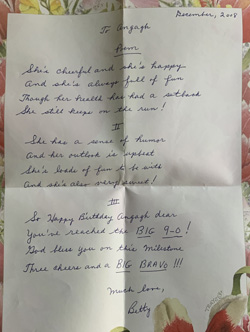 December, 2018
To Angagh
Poem
She's cheerful and she's happy
And she's always full of fun
Though her health has had a setback
She still keeps on the run!
II
She has a sense of humor
And her outlook is upbeat
She's loads of fun to be with
And she's also very sweet!
III
So Happy Birthday Angagh dear
You've reached the BIG 9-0!
God bless you on this Milestone
Three cheers and a BIG BRAVO!!!
Much love,
Betty